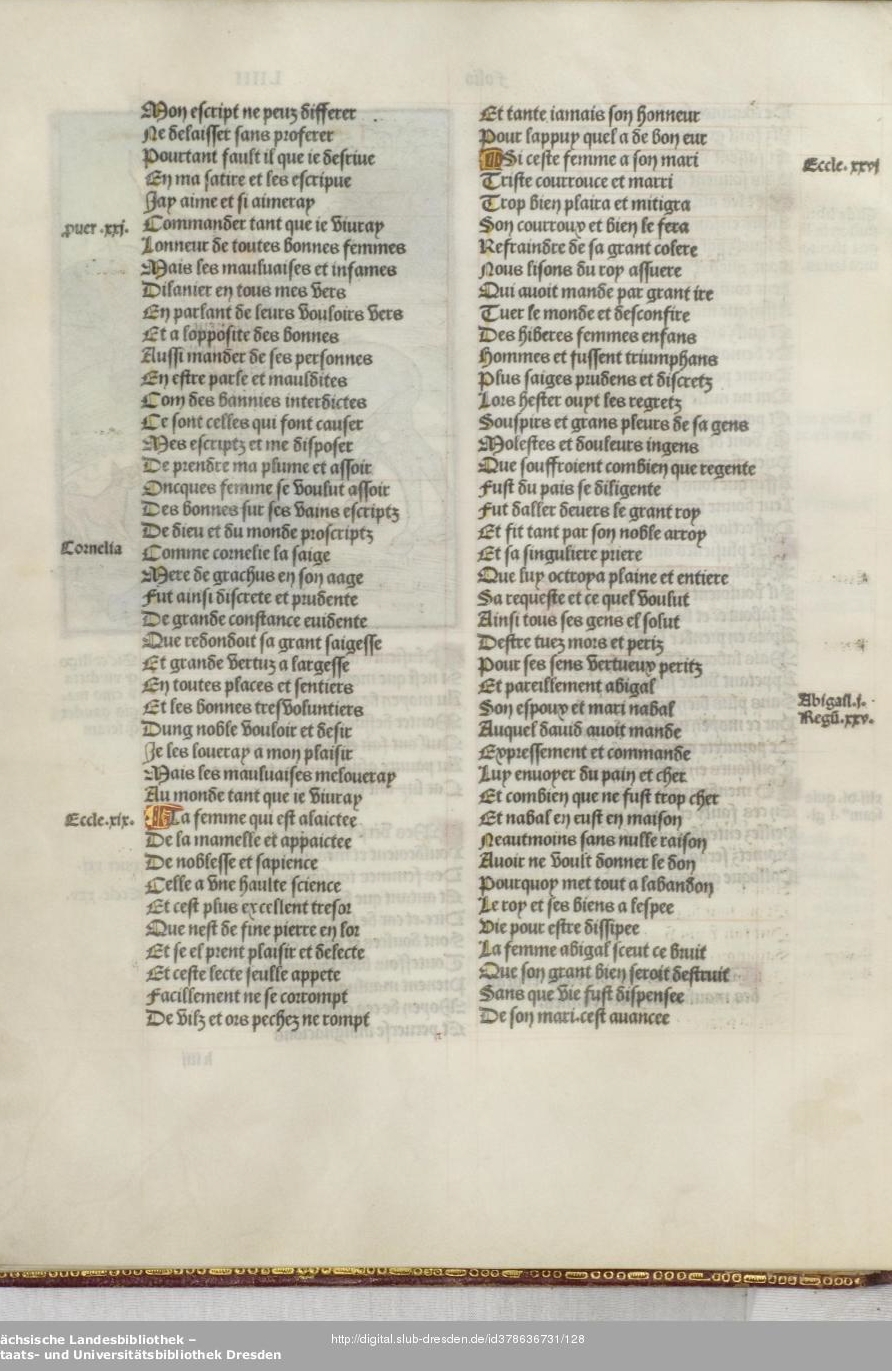 Mon escript ne peuz differer
Ne delaisser sans proferer
Pourtant fault il que ie descriue
En ma satire et les escripue
Jay aime et si aimeray
.puer.xxj.
Commander tant que ie viuray
Lonneur de toutes bonnes femmes
Mais les mauluaises et infames
Dilanier en tous mes vers
En parlant de leurs vouloirs vers
Et a lopposite des bonnes
Aussi mander de ses personnes
En estre parle et mauldites
Com des bannies interdictes
Ce sont celles qui font causer
Mes escriptz et me disposer
De prendre ma plume et assoir
Oncques femme se voulut assoir
Des bonnes sur ses vains escriptz
De dieu et du monde proscriptz
Cornelia
Comme cornelie la saige
Mere de grachus en son aage
Fut ainsi discrete et prudente
De grande constance euidente
Que redondoit sa grant saigesse
Et grande vertuz a largesse
En toutes places et sentiers
Et les bonnes tresvoluntiers
Dung noble vouloir et desir
Je les loueray a mon plaisir
Mais les mauluaises ne loueray
Au monde tant que ie viuray
Eccle.xix.
La femme qui est alaictee
De la mamelle et appaictee
De noblesse et sapience
Celle a vne haulte science
Et cest plus excellent tresor
Que nest de fine pierre en lor
Et se el prent plaisir et delecte
Et ceste lecte seulle appete
Facillement ne se corrompt
De vilz et ors pechez ne rompt
Et tante iamais son honneur
Pour lappuy quel a de bon eur
Eccle.xxvj
Si ceste femme a son mari
Triste courrouce et marri
Trop bien plaira et mitigra
Son courroux et bien le fera
Refraindre de sa grant colere
Nous lisons du roy assuere
Qui auoit mande par grant ire
Tuer le monde et desconfire
Des hiberes femmes enfans
Hommes et fussent triumphans
Plus saiges prudens et discretz
Lors hester ouyt les regretz
Souspirs et grans pleurs de sa gens
Molestes et douleurs ingens
Que souffroient combien que regente
Fust du pais se diligente
Fut daller deuers le grant roy
Et fit tant par son noble arroy
Et sa singuliere priere
Que luy octroya plaine et entiere
Sa requeste et ce quel voulut
Ainsi tous ses gens el solut
Destre tuez mors et periz
Pour ses sens vertueux peritz
Et pareillement abigal
Abigail.j.
Regū.xxv.
Son espoux et mari nabal
Auquel dauid auoit mande
Expressement et commande
Luy enuoyer du pain et cher
Et combien que ne fust trop cher
Et nabal en eust en maison
Neautmoins sans nulle raison
Auoir ne voult donner le don
Pourquoy met tout a labandon
Le roy et ses biens a lespee
Vie pour estre dissipee
La femme abigal sceut ce bruit
Que son grant bien seroit destruit
Sans que vie fust dispensee
De son mari.cest auancee
ächsische Landesbibliothek –
taats- und Universitätsbibliothek Dresden
http://digital.slub-dresden.de/id378636731/128